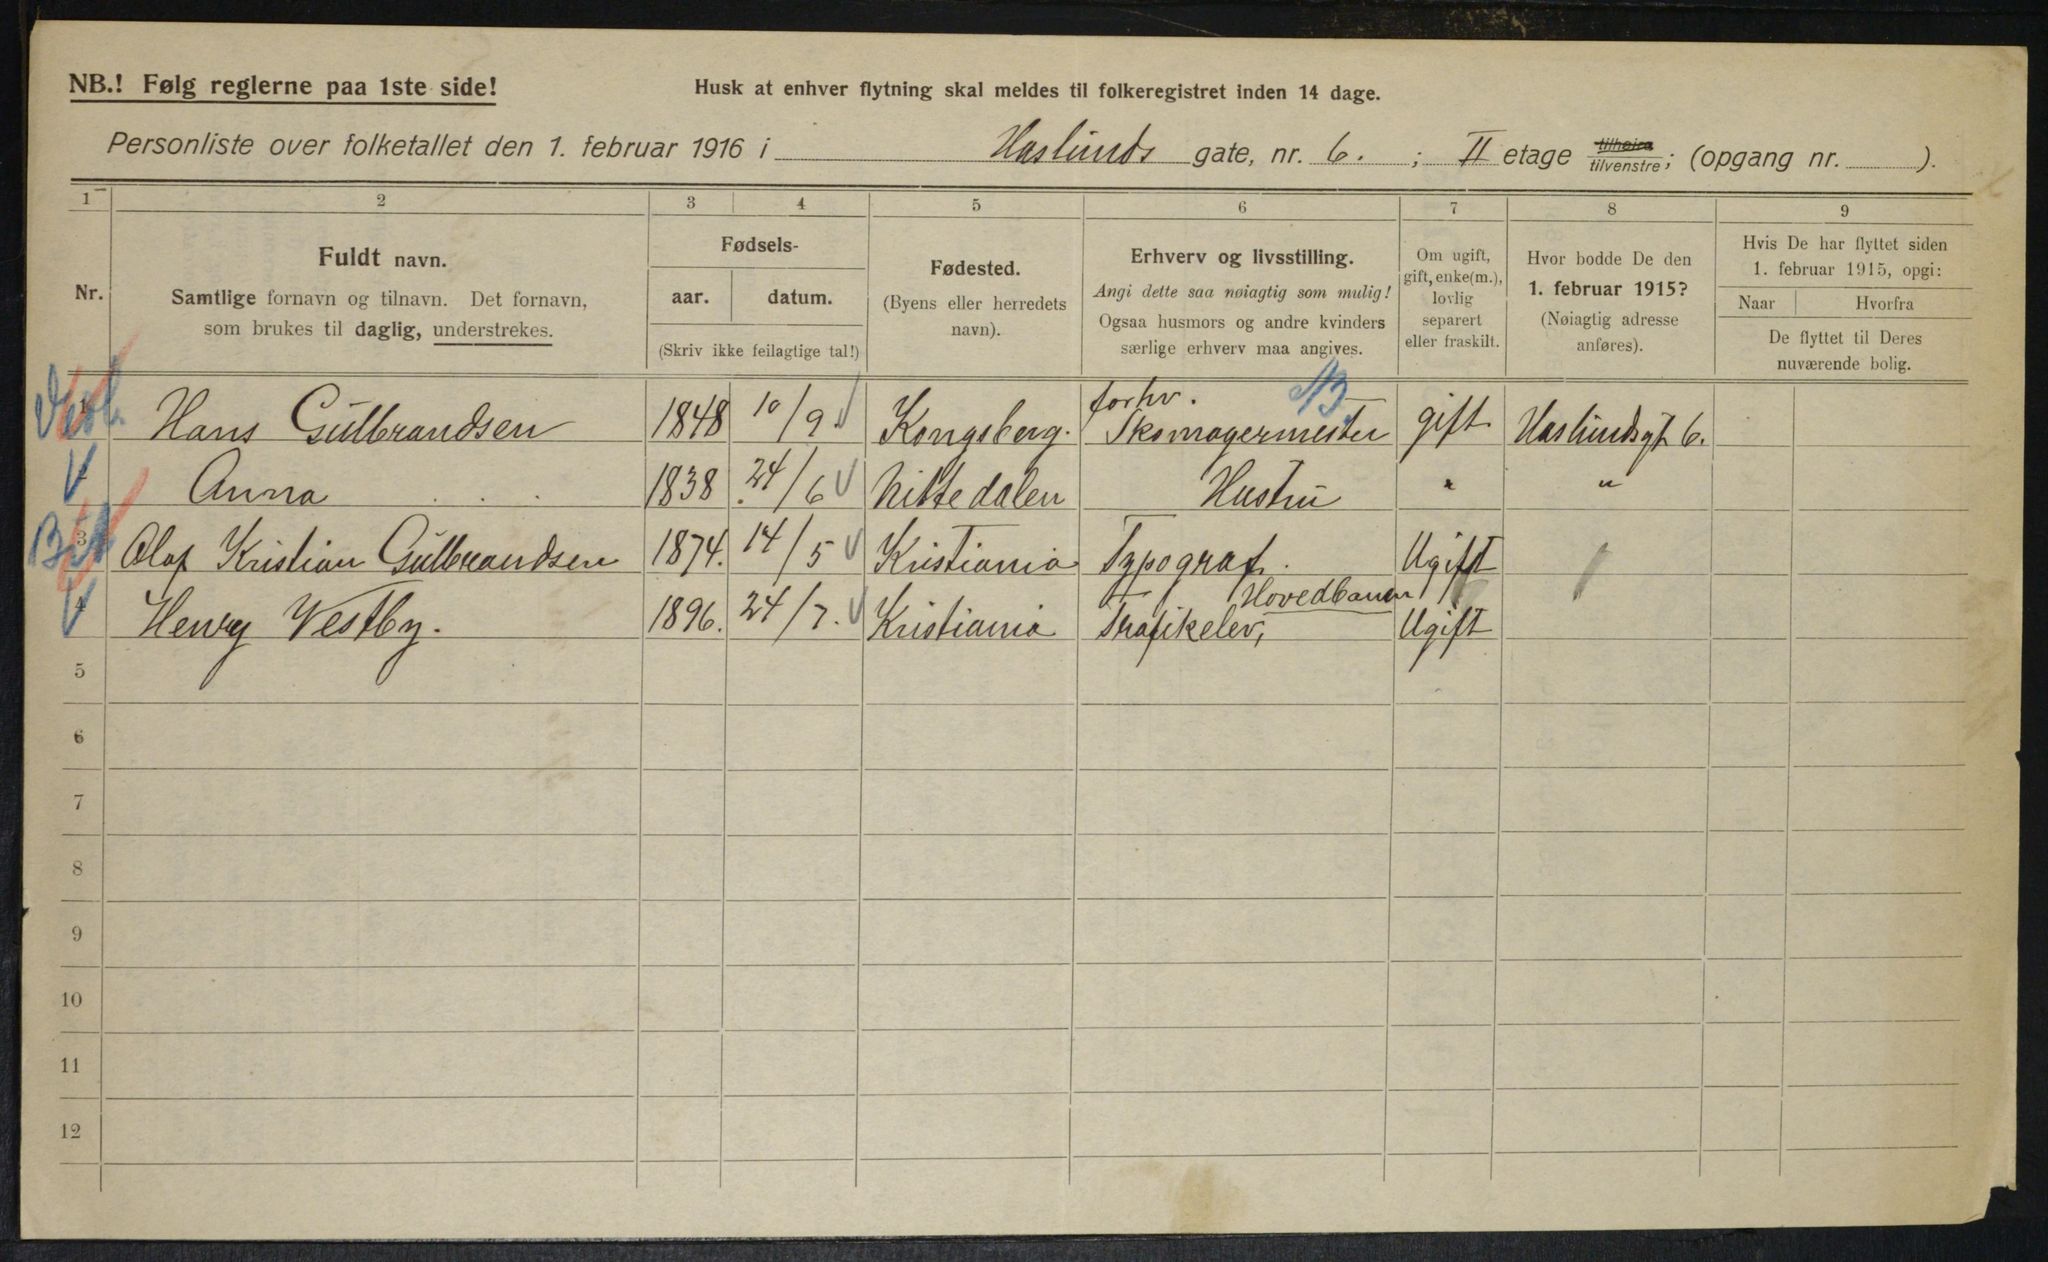 NB.! Følg reglerne paa 1ste side!
Husk at enhver flytning skal meldes til folkeregistret inden 14 dage.
Personliste over folketallet den 1. februar 1916 i Haslunds gate, nr. 6. ; II etage tilhøire tilvenstre; (opgang nr. ).
1 2 3 4 5 6 7 8 9
Nr.
Fuldt navn.
Samtlige fornavn og tilnavn. Det fornavn,
som brukes til daglig, understrekes.
Fødsels-
aar. datum.
(Skriv ikke feilagtige tal!)
Fødested.
(Byens eller herredets
navn).
Erhverv og livsstilling.
Angi dette saa nøiagtig som mulig!
Ogsaa husmors og andre kvinders
særlige erhverv maa angives.
Om ugift,
gift, enke(m.),
lovlig
separert
eller fraskilt.
Hvor bodde De den
1. februar 1915?
(Nøiagtig adresse
anføres).
Hvis De har flyttet siden
1. februar 1915, opgi:
Naar Hvorfra
De flyttet til Deres
nuværende bolig.
1 Hans Gulbrandsen 1848 10/9 Kongsberg. forhv. Skomagermester gift Haslundsgt 6.
Anna 1838 24/6 Nittedalen Hustru " "
3 Olaf Kristian Gulbrandsen 1874. 14/5 Kristiania Typograf. Ugift
4 Henry Vestby. 1896. 24/7. Kristiania Trafikelev, Hovedbanen Ugift
5
6
7
8
9
10
11
12